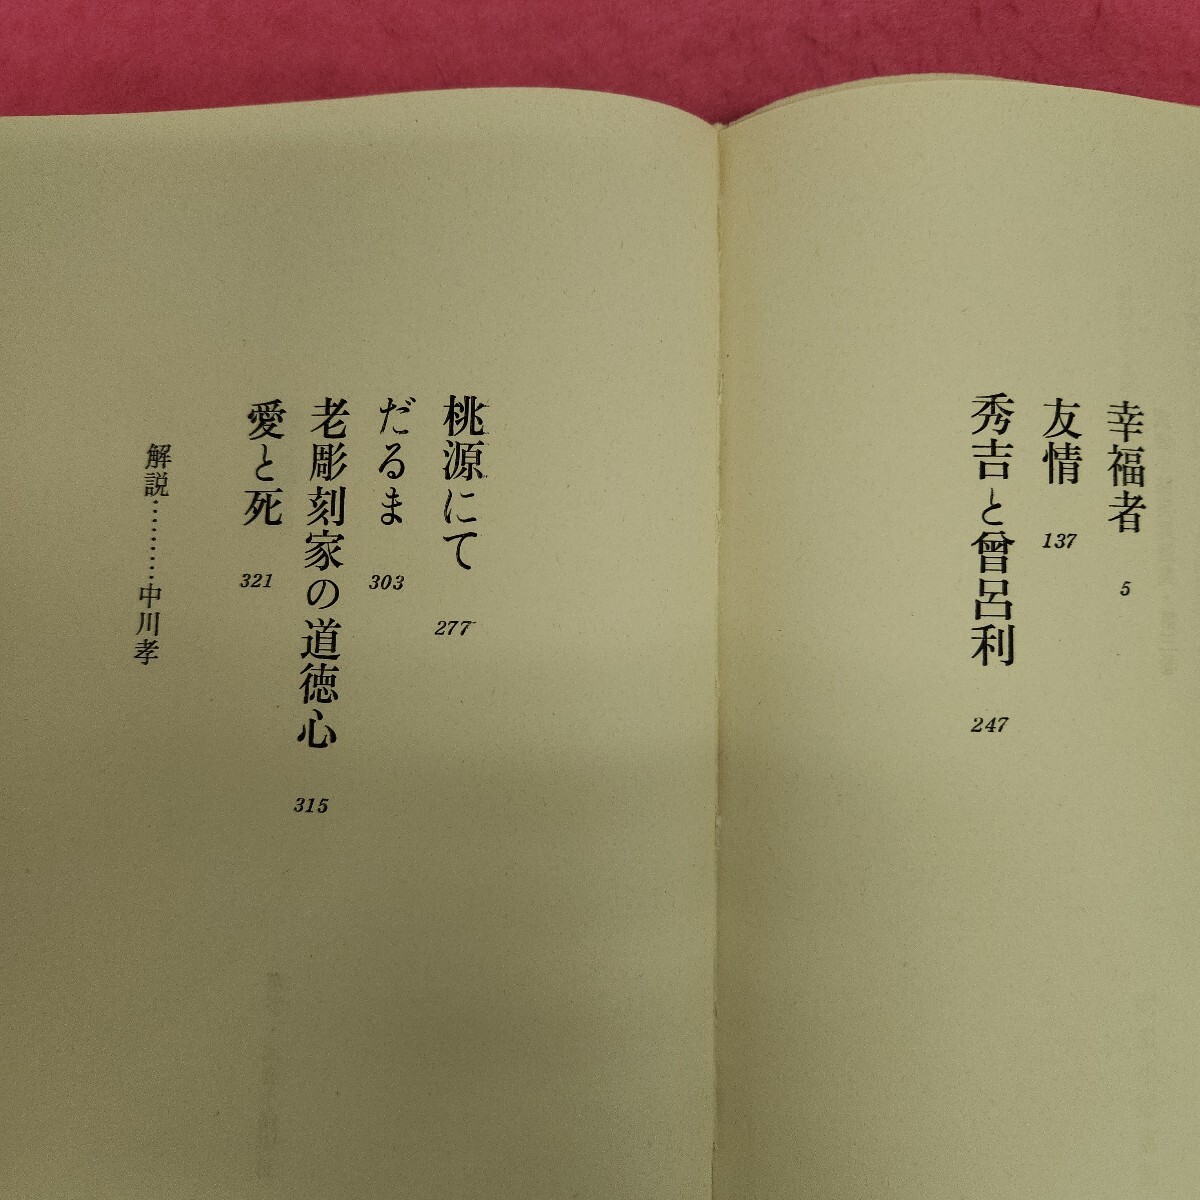 幸福者 5
友情 137
秀吉と曾呂利 247
桃源にて 277
だるま 303
老彫刻家の道徳心 315
愛と死 321
解説………中川孝